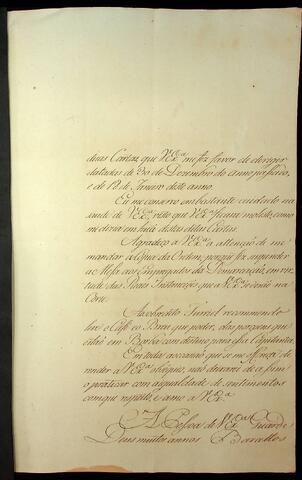 duas Cartas, que V. Ex.ª me fez favor de dirigir
datadas de 30 de Dezembro do anno passado,
e de 12 de Janeiro deste anno.
Eu me conservo em bastante cuidado na
saude de V. Ex.ª, visto que V. Ex.ª ficava molesto, como
me dizia em huma destas ditas Cartas.
Agradeço a V. Ex.ª a attenção de me
mandar a Copia da Ordem, porque fez suspender
as Mezas aos Empregados da Demarcação, em vir-
tude das Reais Instrucçoens que a V. Ex.ª se derão na
Corte.
Ao sobredito Furriel recommendo
leve o Cabo os que poder, das porçoens que
estão em Barcellos com destino para essa Capitania.
Em todas as occazioens que se me offereça de
render a V. Ex.ª obsequios, não duvide de a fim
o praticar com a igualdade de sentimentos
com que respeito, e amo a V. Ex.ª
A Pessoa de V. Ex.ª Guarde
Deus muitos annos Barcellos